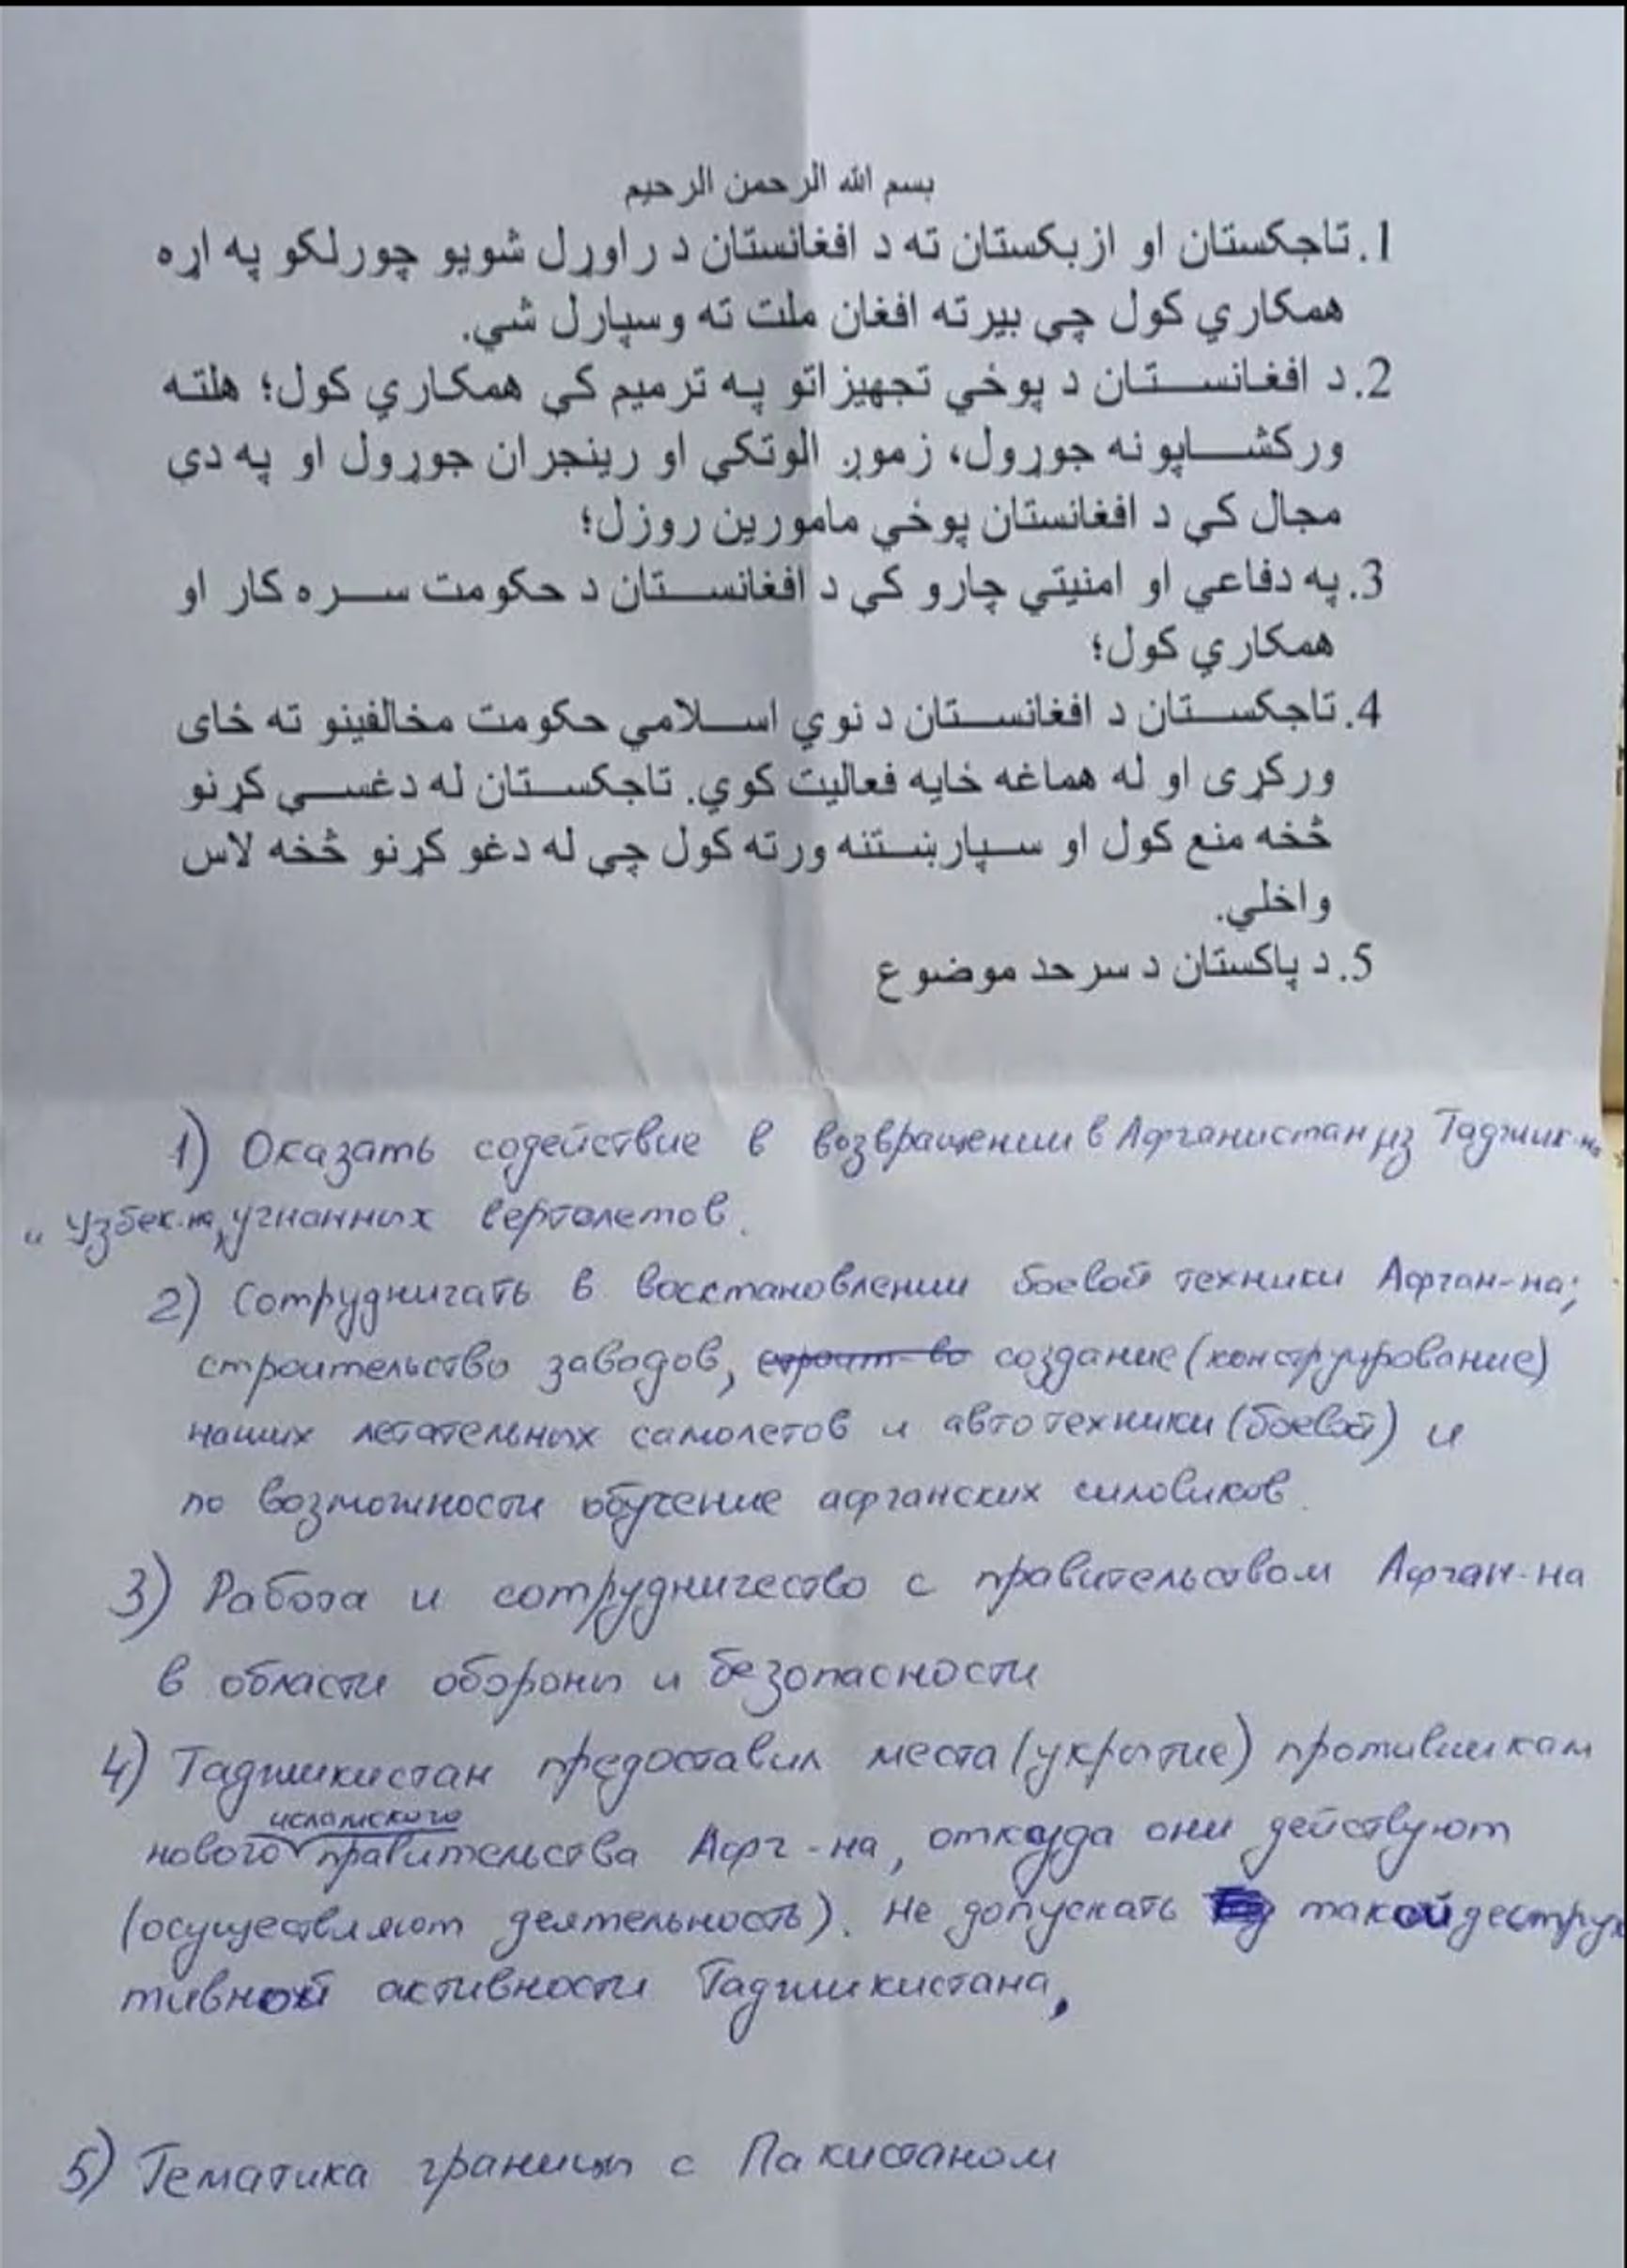 بسم الله الرحمن الرحیم
1. تاجکستان او ازبکستان ته د افغانستان د راوړل شویو چورلکو په اړه
همکاري کول چي بیرته افغان ملت ته وسپارل شي.
2. د افغانستان د پوځي تجهیزاتو په ترمیم کي همکاري کول؛ هلته
ورکشاپونه جوړول، زموږ الوتکي او رینجران جوړول او په دي
مجال کي د افغانستان پوځي مامورین روزل؛
3. په دفاعي او امنیتي چارو کي د افغانستان د حکومت سره کار او
همکاري کول؛
4. تاجکستان د افغانستان د نوي اسلامي حکومت مخالفینو ته ځای
ورکړی او له هماغه ځایه فعالیت کوي. تاجکستان له دغسي کړنو
څخه منع کول او سپارښتنه ورته کول چي له دغو کړنو څخه لاس
واخلي.
5. د پاکستان د سرحد موضوع
1) Оказать содействие в возвращении в Афганистан из Таджик-на
и Узбек-на, угнанных вертолетов.
2) Сотрудничать в восстановлении боевой техники Афган-на;
строительство заводов, строит-во создание (конструирование)
наших летательных самолетов и автотехники (боевой) и
по возможности обучение афганских силовиков.
3) Работа и сотрудничество с правительством Афган-на
в области обороны и безопасности
4) Таджикистан предоставил места (укрытие) противникам
исламского
нового правительства Афг-на, откуда они действуют
(осуществляют деятельность). Не допускать такой деструк
тивной активности Таджикистана,
5) Тематика границы с Пакистаном